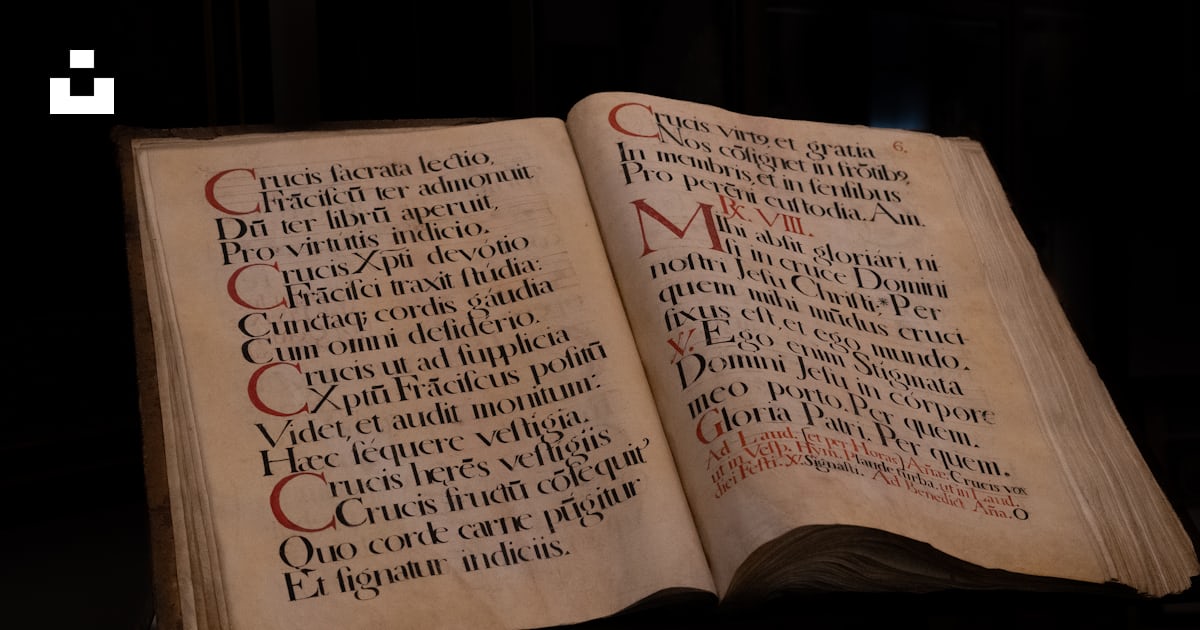 Crucis ſacrata lectio,
Frāciſcū ter admonuit
Dū ter librū aperuit,
Pro virtutis indicio.
Crucis Xpti devótio
Frāciſci traxit ſtúdia:
Cúnctaq; cordis gáudia
Cum omni deſidério.
Crucis ut ad ſupplicia
Xptū Frāciſcus poſitū
Videt, et audit monitum:
Hæc ſéquere veſtígia.
Crucis herēs veſtígiis
Crucis fructū cōſequit
Quo corde carne pūgitur
Et ſignatur indiciis.
6.
Crucis virt9, et gratia
Nos cōſignet in frōtib9,
In membris, et in ſenſibus
Pro perēni cuſtodia. Am.
℞. VIII.
Mihi abſit gloriári, ni
ſi in cruce Domini
noſtri Jeſu Chriſti; * Per
quem mihi mūdus cruci
fixus eſt, et ego mundo.
℣. Ego enim Stigmata
Domini Jeſu in córpore
meo porto. Per quem.
Gloria Patri. Per quem.
Ad Laud. (et per Horas) Añæ: Crucis vox
ut in Veſp. Hym. Plaude turba. ut in Laud.
diei Feſti. ℣. Signaſti. Ad Benedict Aña. O